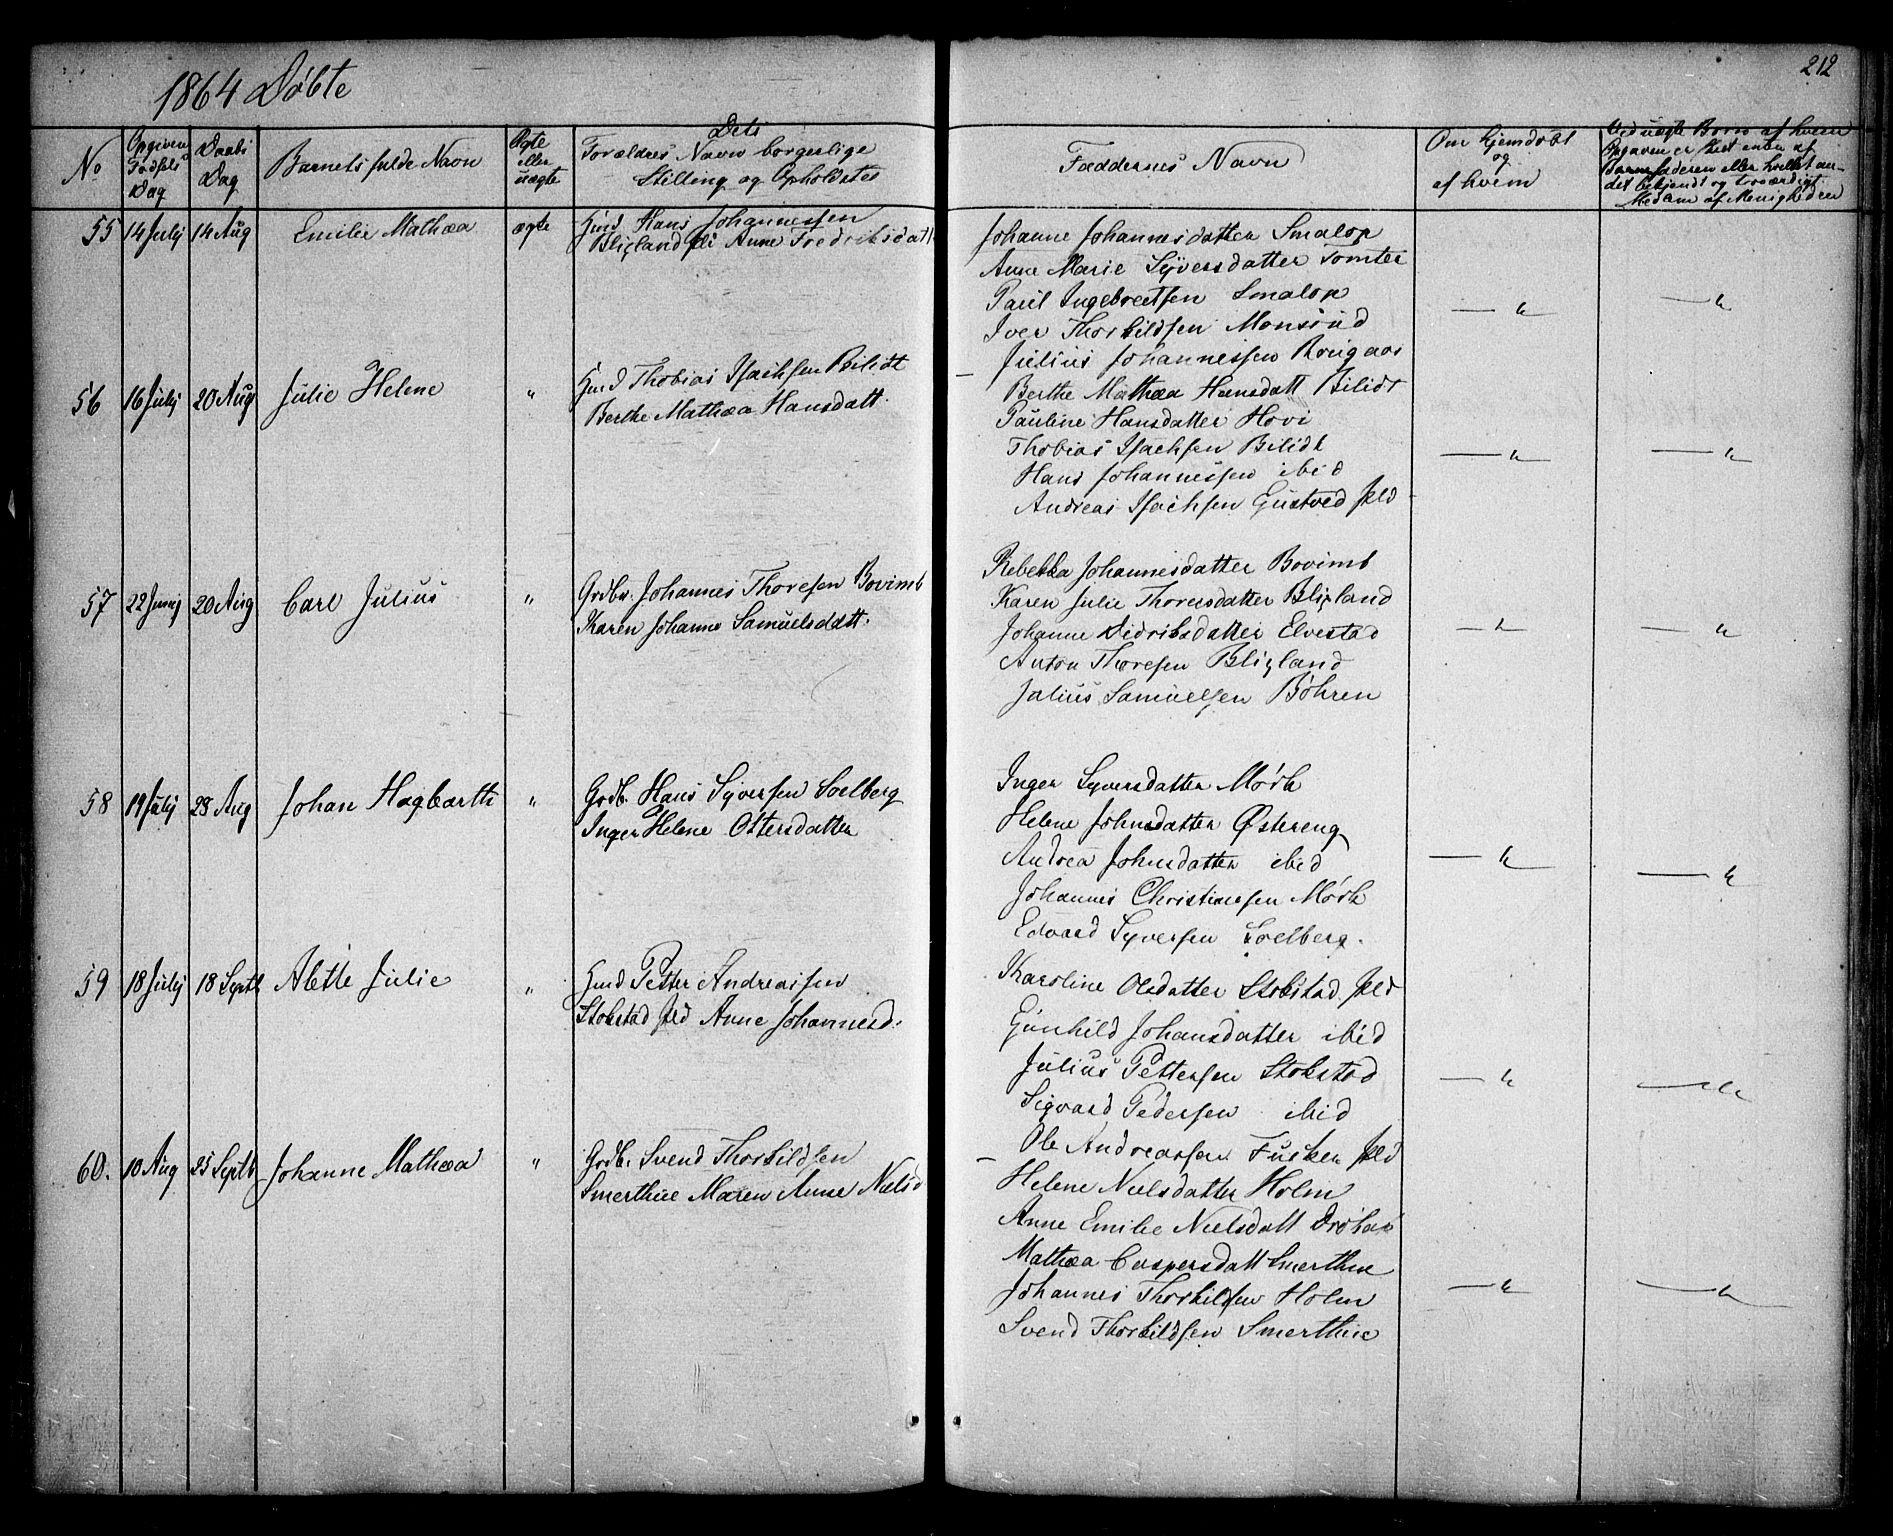 212
1864 Døbte
No
Opgiven Fødsels Dag
Daabs Dag
Barnets fulde Navn
Ægte eller uægte
Dets Forældres Navn borgerlige Stilling og Opholdsted
Faddernes Navn
Om hjemdøbt og af hvem
Ved uægte Børn af hvem Opgaven er skeet enten af Barnefaderen eller hvilket andet bekjendt og troværdigt Medlem af Menigheden
55 14 July 14 Aug Emilie Mathæa ægte Hmd Hans Johannessen
Bligland Anne Fredriksdatt
Johanne Johannesdatter Smalop
Anne Marie Syversdatter Tomter
Paul Ingebretsen Smalop
Iver Thorkildsen Monsrud
Julius Johannessen Rougaas
56 16 July 20 Aug Julie Helene " Hmd Thobias Isachsen Bilidt
Berthe Mathæa Hansdatt.
Berthe Mathæa Hansdatt Bilidt
Pauline Hansdatter Hovi
Thobias Isachsen Bilidt
Hans Johannessen ibid
Andreas Isachsen Gustved
57 22 Juny 20 Aug Carl Julius " Grdbr. Johannes Thoresen Bovimb
Karen Johanne Samuelsdatt.
Rebekka Johannesdatter Bovimb
Karen Julie Thoresdatter Bligland
Johanne Didriksdatter Elvestad
Anton Thoresen Bligland
Julius Samuelsen Bøhren
58 19 July 28 Aug Johan Hagbarth " Grdb. Hans Syversen Soelberg
Inger Helene Ottersdatter
Inger Syversdatter Mørk
Helene Johnsdatter Østereng
Andrea Johnsdatter ibid
Johannes Christiansen Mørk
Edvard Syversen Soelberg.
59 18 July 18 Septb Alette Julie " Hmd Petter Andreassen
Stokstad Anne Johannesd.
Karoline Olsdatter Stokstad
Gunhild Johansdatter ibid
Julius Pettersen Stokstad
Sigvard Pedersen ibid
Ole Andreassen
60. 10 Aug 25 Septb Johanne Mathæa " Grdb. Svend Thorkildsen
Smerthue Maren Anne Nielsd
Helene Nielsdatter Holm
Anne Emilie Nielsdatt Drøbak
Mathæa Caspersdatt Smerthue
Johannes Thorkildsen Holm
Svend Thorkildsen Smerthue